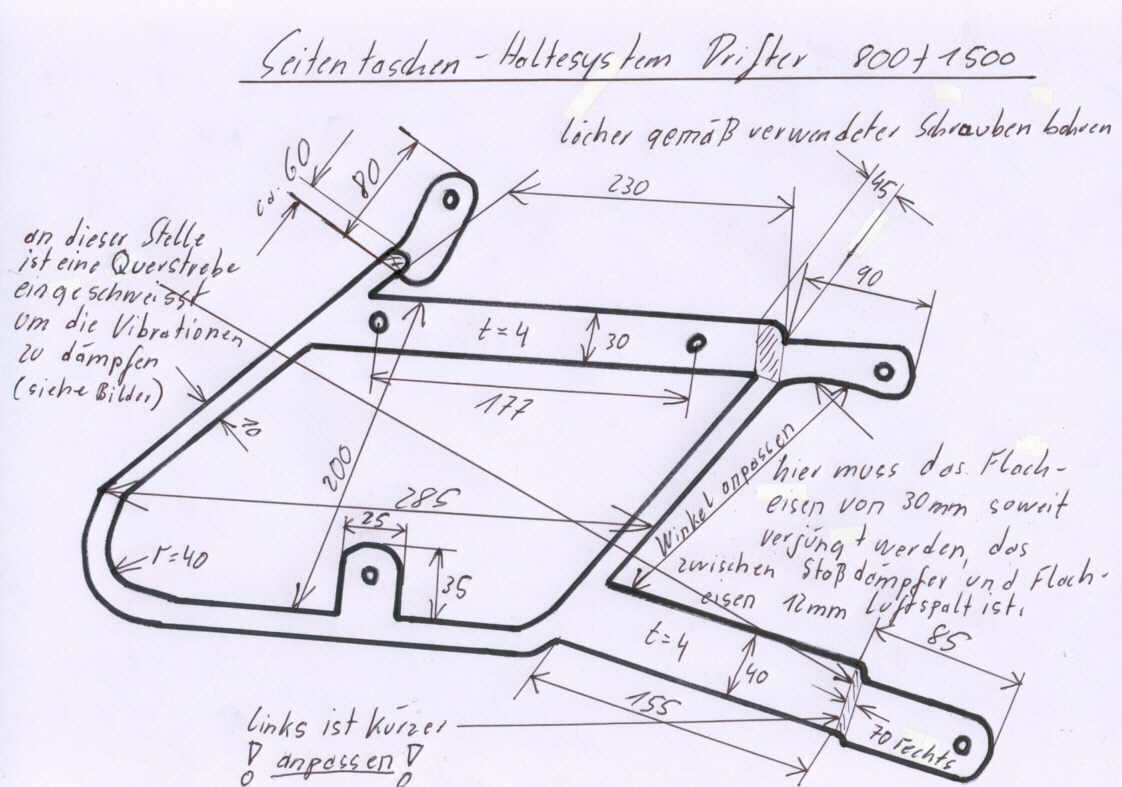 Seitentaschen-Haltesystem Drifter 800+1500
löcher gemäß verwendeter Schrauben bohren
ca. 60
80
230
45
90
an dieser Stelle
ist eine Querstrebe
eingeschweisst
um die Vibrationen
zu dämpfen
(siehe Bilder)
t=4
30
177
20
200
285
25
35
r=40
Winkel anpassen
hier muss das Flach-
eisen von 30mm soweit
verjüngt werden, das
zwischen Stoßdämpfer und Flach-
eisen 12mm luftspalt ist.
t=4
40
85
155
70 rechts
links ist kürzer
! anpassen !